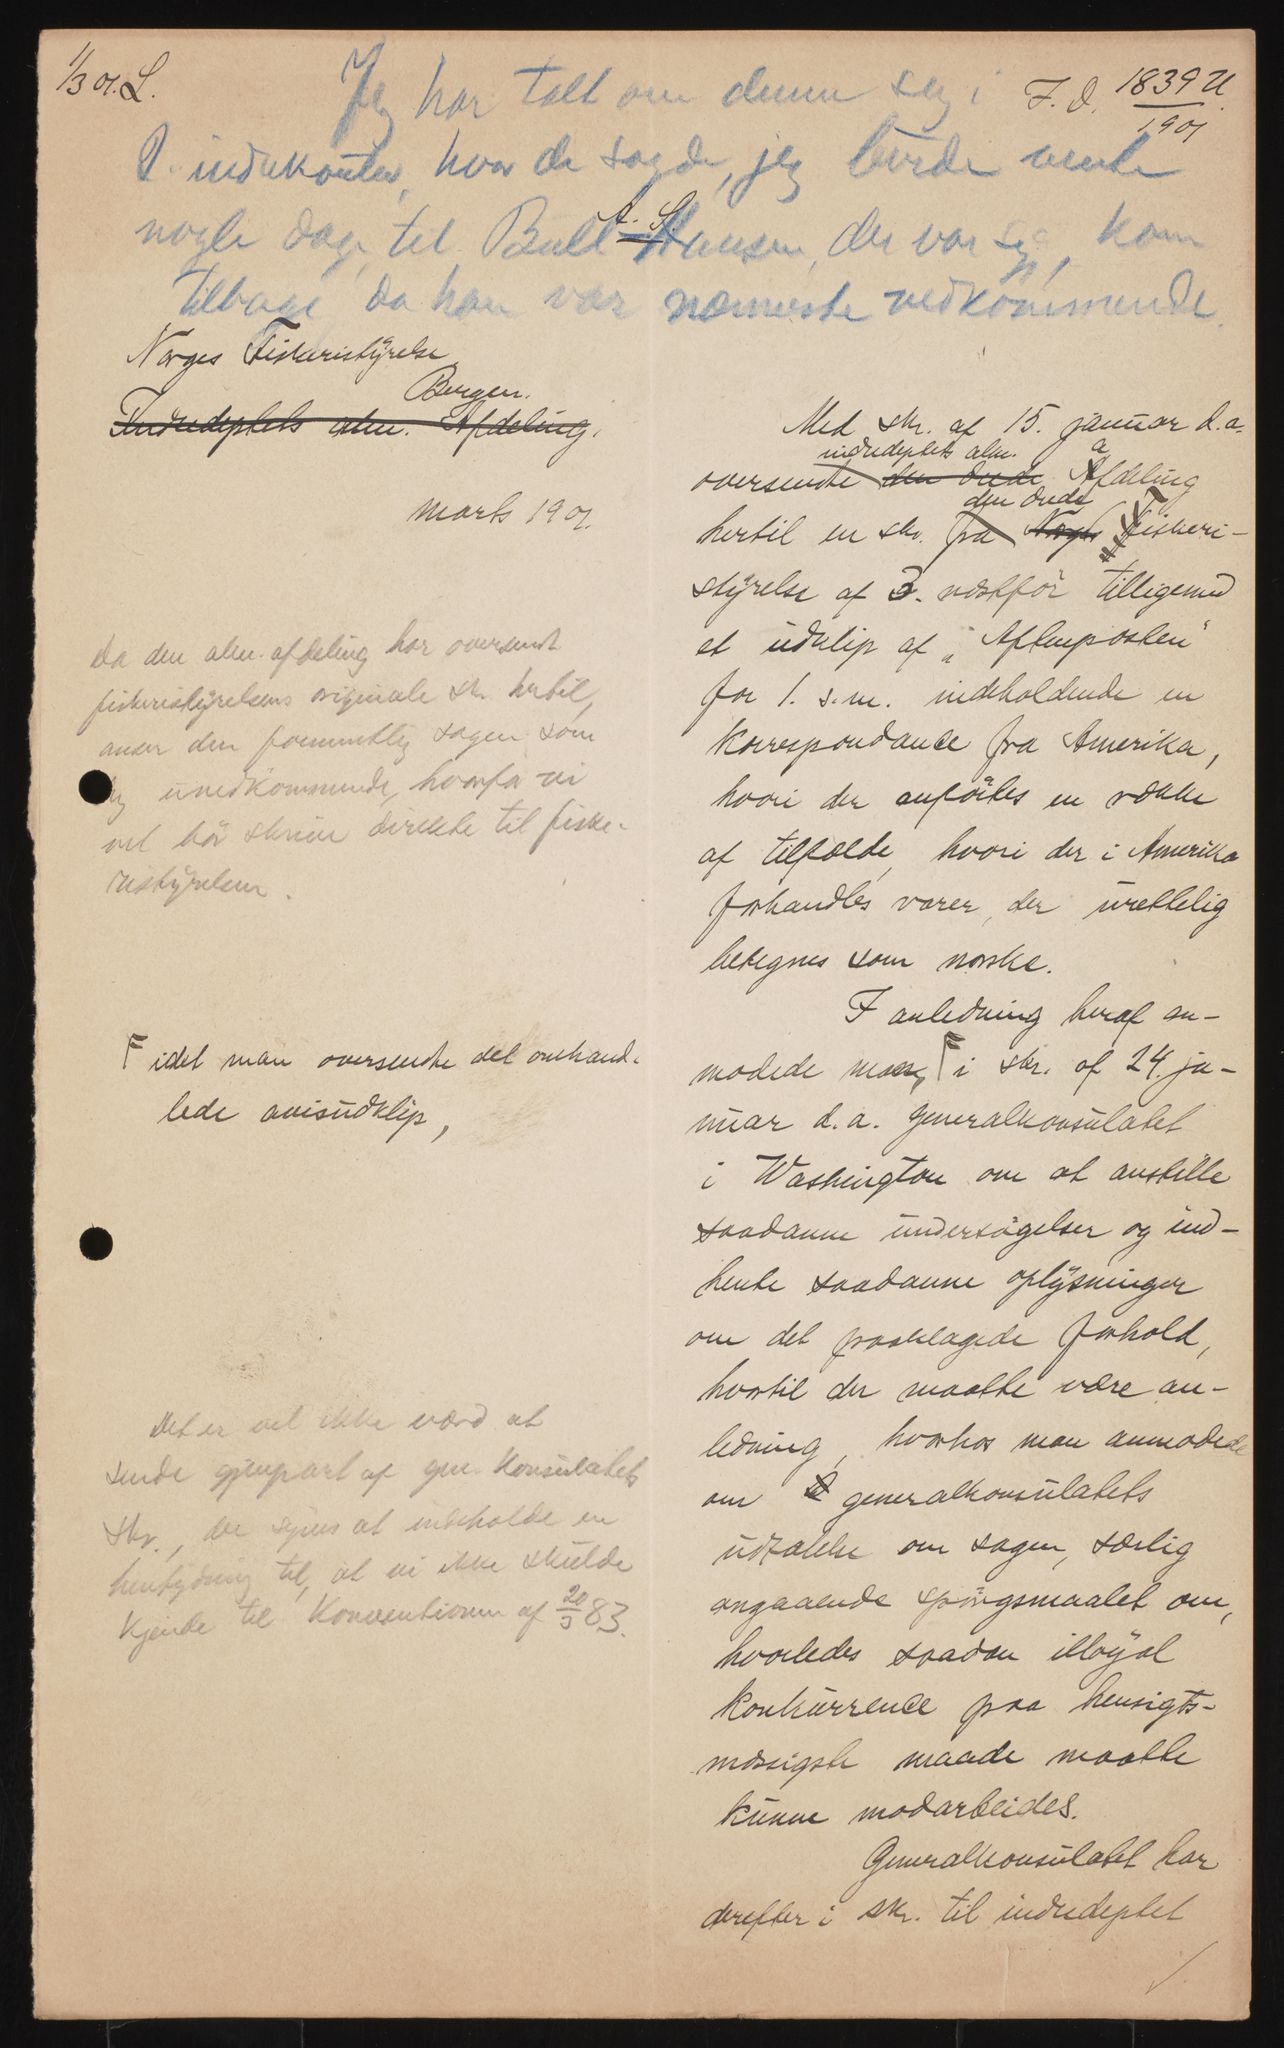 1/3 01. L.
J. D. 1839 U.
1901
Jeg har talt om denne sag i
D. indrekontor, hvor de sagde, jeg burde vente
nogle dage, til Bull-Hansen, der var syg, kom
A. S.
tilbage da han var nærmeste vedkommende.
Norges Fiskeristyrelse
Bergen.
Indredeptets alm. Afdeling.
marts 1901.
Da den alm. afdeling har oversendt
fiskeristyrelsens originale skr. hertil,
anser den formentlig sagen som
sig uvedkommende, hvorfor vi
vel bør skrive direkte til fiske-
ristyrelsen.
F idet man oversendte det omhand-
lede avisudklip,
Det er vel ikke værd at
sende gjenpart af gen. konsulatets
skr., der synes at indeholde en
hentydning til, at vi ikke skulde
kjende til Konventionen af 20/3 83.
Med skr. af 15. januar d. a.
indredeptets alm. a
oversendte den Indre Afdeling
den Indre
hertil en skr. fra Norges Fiskeri-
styrelse af 3. næstfør tilligemed
et udklip af "Aftenposten"
for 1. s. m. indeholdende en
korrespondance fra Amerika,
hvori der anførtes en række
af tilfælde, hvori der i Amerika
forhandles varer, der urettelig
betegnes som norske.
I anledning heraf an-
modede man, F i skr. af 24. ja-
nuar d. a. generalkonsulatet
i Washington om at anstille
saadanne undersøgelser og ind-
hente saadanne oplysninger
om det paaklagede forhold,
hvortil der maatte være an-
ledning, hvorhos man anmodede
om generalkonsulatets
udtalelse om sagen, særlig
angaaende spørgsmaalet om,
hvorledes saadan illoyal
konkurrence paa hensigts-
mæssigste maade maatte
kunne modarbeides.
Generalkonsulatet har
derefter i skr. til indredeptet